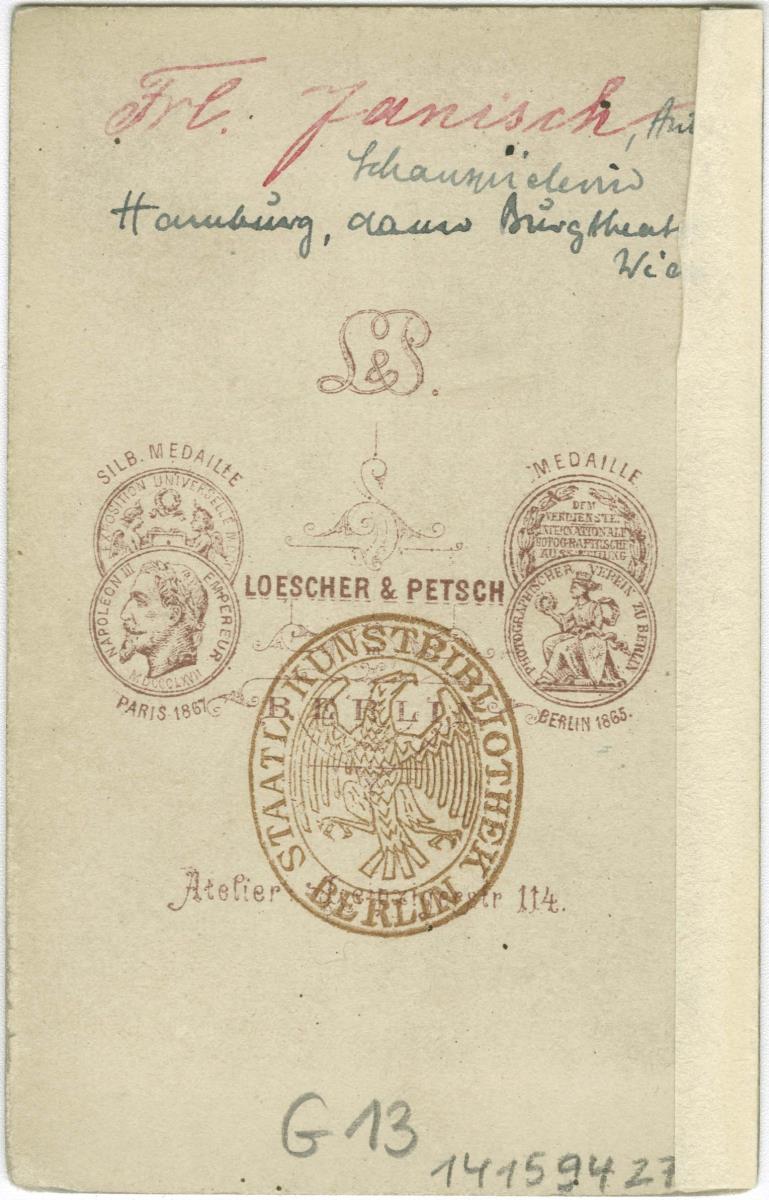 Frl. Janisch, Ant
Schauspielerin
Hamburg, dann Burgtheat
Wie
L & P.
SILB. MEDAILLE
EXPOSITION UNIVERSELLE
NAPOLEON III EMPEREUR
MDCCCLXVII
PARIS 1867
MEDAILLE
DEM
VERDIENSTE.
INTERNATIONALE
FOTOGRAFISCHE
AUSSTELLUNG
PHOTOGRAPHISCHER VEREIN ZU BERLIN
BERLIN 1865.
LOESCHER & PETSCH
BERLIN
STAATL. KUNSTBIBLIOTHEK
BERLIN
Atelier 114.
G 13
14159427